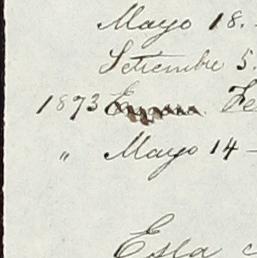 Mayo 18.-
Setiembre 5.
1873 Fe
" Mayo 14 -
Esta c